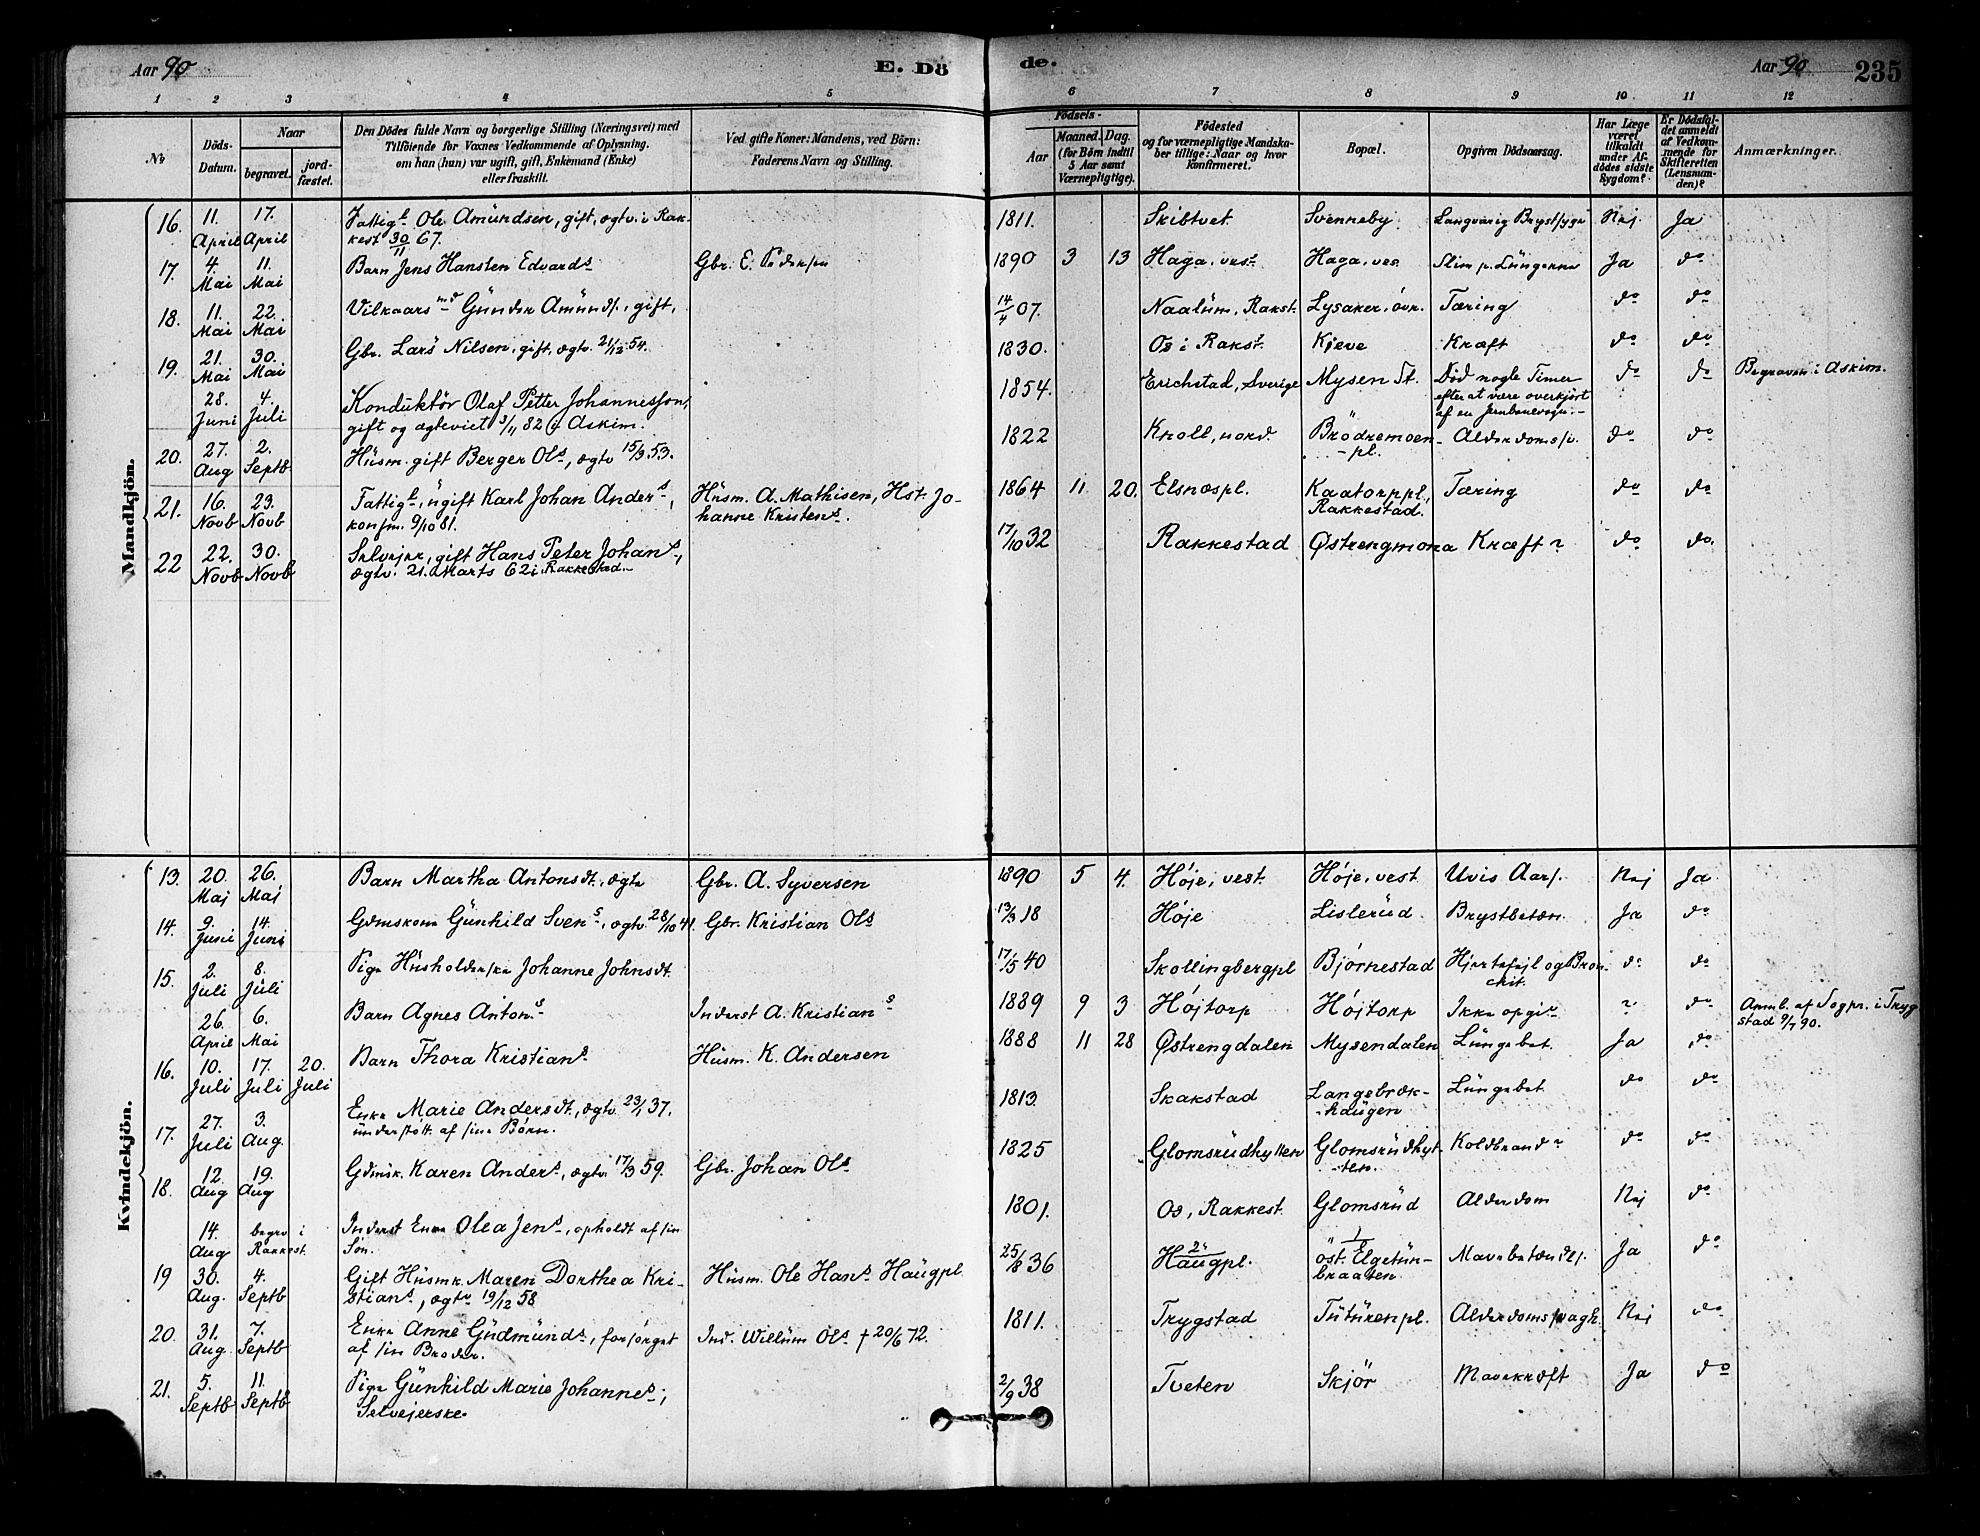 Aar 90 E. Dö
de. Aar 90 235
1 2 3 4 5 6 7 8 9 10 11 12
No
Döds-
Datum.
Naar
begravet.
jord-
fæstet.
Den Dödes fulde Navn og borgerlige Stilling (Næringsvei) med
Tilföiende for Voxnes Vedkommende af Oplysning.
om han (hun) var ugift, gift, Enkemand (Enke)
eller fraskilt.
Ved gifte Koner: Mandens, ved Börn:
Faderens Navn og Stilling.
Födsels-
Aar
Maaned. Dag.
(for Börn indtil
5 Aar samt
Værnepligtige).
Födested
og for værnepligtige Mandska-
ber tillige: Naar og hvor
konfirmeret.
Bopæl.
Opgiven Dödsaarsag.
Har Læge
været
tilkaldt
under Af-
dödes sidste
Sygdom?
Er Dödsfal-
det anmeldt
af Vedkom-
mende for
Skifteretten
(Lensman-
den)?
Anmærkninger.
Mandkjön.
16. 11. April 17. April Fattigl. Ole Amündsen, gift, ægtv. i Rak-
kest 30/11 67. 1811. Skibtvet Svenneby Langvarig Brystsyge Nej Ja
17. 4. Mai 11. Mai Barn Jens Hansten Edvards Gbr. E. Pedersen 1890 3 13 Haga, vest Haga, ves Slim p. Lüngerne Ja do
18. 11. Mai 22. Mai Vilkaarsmd Günder Amünds., gift, 14/4 07. Naalüm, Rakst. Lysaker, övr. Tæring do do
19. 21. Mai 30. Mai Gbr. Lars Nilsen, gift, ægtv. 21/12 54. 1830. Os i Rakst. Kjeve Kræft do do
28. Juni 4. Juli Konduktör Olaf Petter Johannesson,
gift og ægteviet 3/11 82 i Askim. 1854. Erichstad, Sverige Mysen St. Död nogle Timer
efter at være overkjört
af en Jernbanevogn. do do Begraven i Askim.
20. 27. Aug 2. Septb Hüsm. gift Berger Ols, ægtv 15/3 53. 1822 Knoll, nord. Brödremoen-
pl. Alderdomssv. do do
21. 16. Novb 23. Novb Fattigl., ügift Karl Johan Anders,
konfm. 9/10 81. Hüsm. A. Mathisen, Hst. Jo-
hanne Kristens. 1864 11 20. Elsnæspl. Kaatorppl.,
Rakkestad. Tæring do do
22 22. Novb 30. Novb Selvejer, gift Hans Peter Johans,
ægtv. 21. Marts 62 i Rakkestad. 17/10 32 Rakkestad Østrengmona Kræft do do.
Kvindekjön.
13. 20. Maj 26. Maj Barn Martha Antonsdt., ægte Gbr. A. Syversen 1890 5 4. Høje, vest. Høje, vest Uvis Aars. Nej Ja
14. 9. Juni 14. Juni Gdmskone Günhild Svens, ægtv. 28/10 41. Gbr. Kristian Ols 13/3 18 Høje Lislerüd Brystbetæn. Ja do
15. 2. Juli 8. Juli Pige Hüsholderske Johanne Johnsdt. 17/5 40 Skollingbergpl Bjørnestad Hjertefejl og Bron-
chit. do do
26. April 6. Mai Barn Agnes Antons Inderst A. Kristians 1889 9 3 Højtorp Højtorp Ikke opgi. ? do Anmb. af Sogpr. i Tryg
stad 9/7 90.
16. 10. Juli 17. Juli 20. Juli Barn Thora Kristians Hüsm. K. Andersen 1888 11 28 Østrengdalen Mysendalen Lüngebet. Ja do
17. 27. Juli 3. Aug. Enke Marie Andersdt., ægtv. 23/1 37.
ünderstött. af sine Børn. 1813. Skakstad Langebræk-
haügen Lüngebet do do
18. 12. Aug 19. Aug Gdmsk. Karen Anders, ægtv. 17/3 59. Gbr. Johan Ols 1825 Glomsrüdhytten Glomsrüdhyt-
ten. Koldbrand do do
14. Aug begrv i
Rakkest. Inderst Enke Olea Jens, opholdt af sin
Søn. 1801. Os, Rakkest. Glomsrüd Alderdom Nej do
19 30. Aug. 4. Septb Gift Hüsmk. Maren Dorthea Kri-
stians, ægtv 19/12 58 Hüsm. Ole Hans Haügpl 25/8 36 Haügpl. öst. Elgetün-
braaten Mavebetændls. Ja do
20. 31. Aug 7. Septb Enke Anne Güdmünds, forsörget
af sin Broder. Ind. Willüm Ols † 20/6 72. 1811. Trygstad Tütürenpl. Alderdomssvagh. Nej do
21. 5. Septb 11. Septb Pige Günhild Marie Johannes;
Selvejerske 2/9 38 Tveten Skjör Mavekræft Ja do